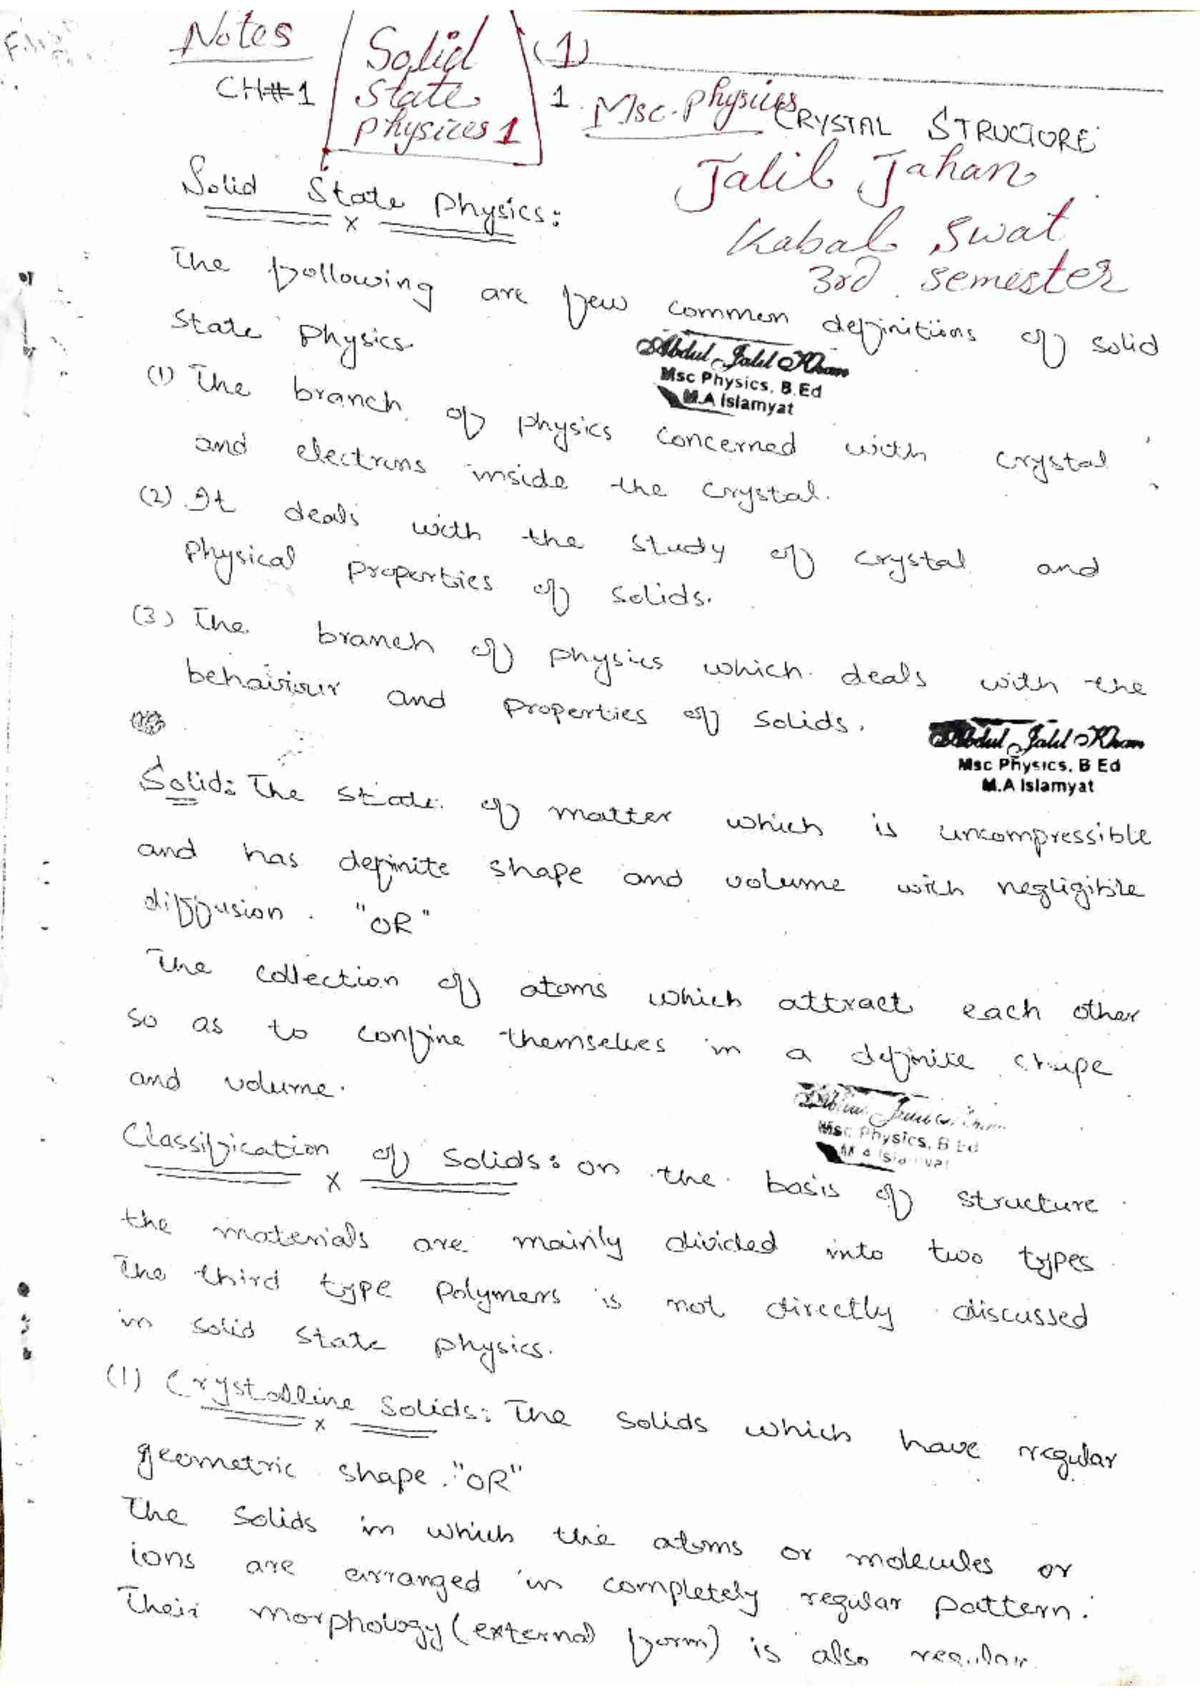 Notes
Solid
State
Physices 1
(1)
CH#1
1
Msc. Physics
CRYSTAL STRUCTORE
Jalil Jahan
Kabal Swat
3rd semester
Solid State Physics:
x
The following are few common definitions of solid
state physics.
Abdul Jalil Khan
Msc Physics, B.Ed
M.A Islamyat
(1) The branch of physics concerned with crystal
and electrons inside the crystal.
(2) It deals with the study of crystal and
physical properties of solids.
(3) The branch of physics which deals with the
behaiviour and properties of solids.
Abdul Jalil Khan
Msc Physics, B Ed
M.A Islamyat
Solid: The state of matter which is uncompressible
and has definite shape and volume with negligible
diffusion. "OR"
The collection of atoms which attract each other
so as to confine themselves in a definite shape
and volume.
Msc Physics, B Ed
M A Islamyat
Classification of Solids: on the basis of structure
x
the materials are mainly divided into two types
The third type polymers is not directly discussed
in solid state physics.
(1) Crystalline Solids: The solids which have regular
x
geometric shape. "OR"
The solids in which the atoms or molecules or
ions are arranged in completely regular pattern.
Their morphology (external form) is also regular